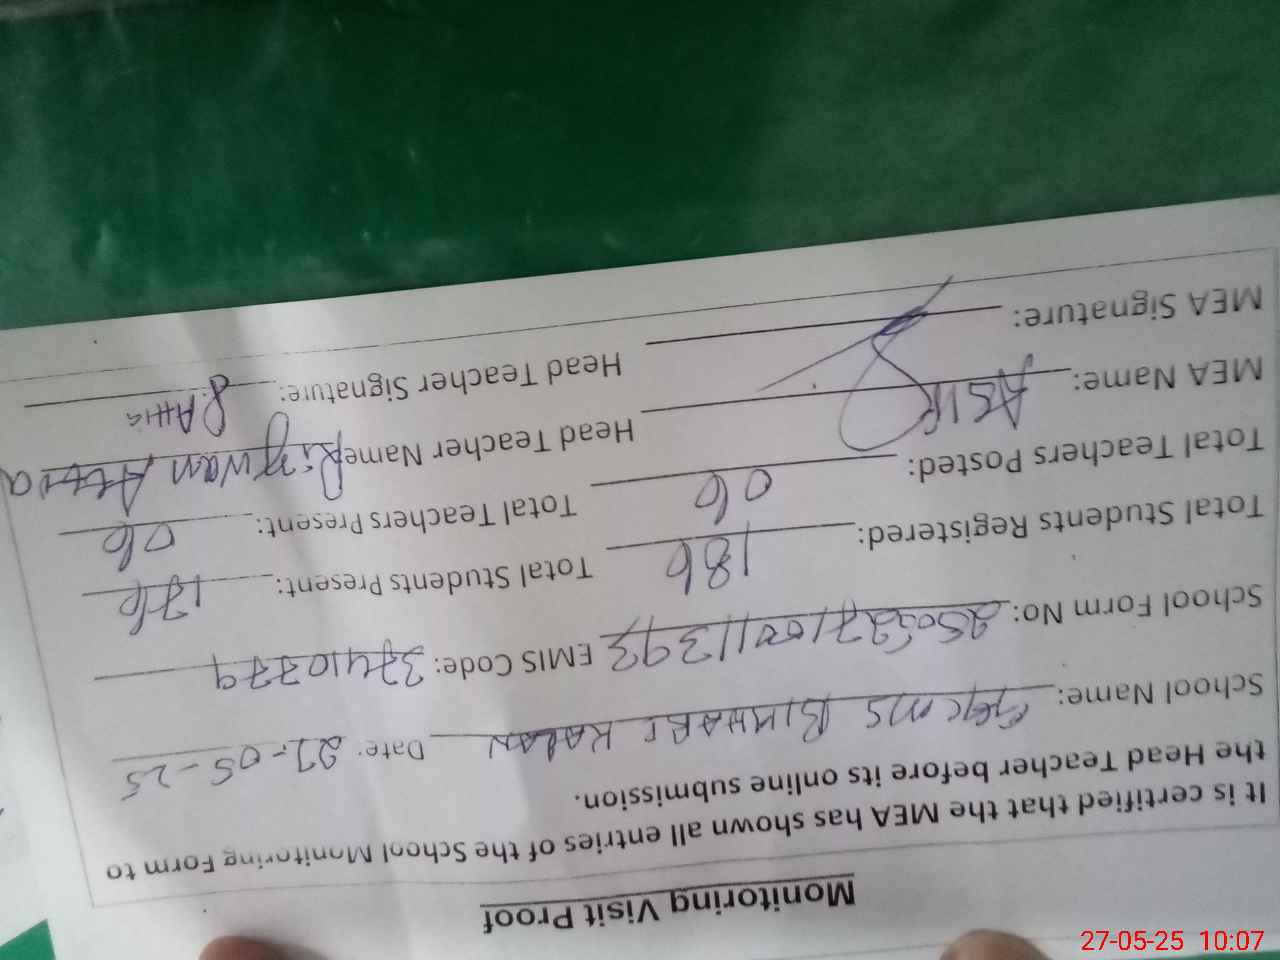 Monitoring Visit Proof
It is certified that the MEA has shown all entries of the School Monitoring Form to
the Head Teacher before its online submission.
School Name: BIKHARI KALAN Date: 27-05-25
School Form No: EMIS Code: 37410779
Total Students Registered: 186 Total Students Present: 176
Total Teachers Posted: 06 Total Teachers Present: 06
MEA Name: ASIF Head Teacher Name: Rizwan Attia
MEA Signature: Head Teacher Signature: R.Attia
27-05-25 10:07